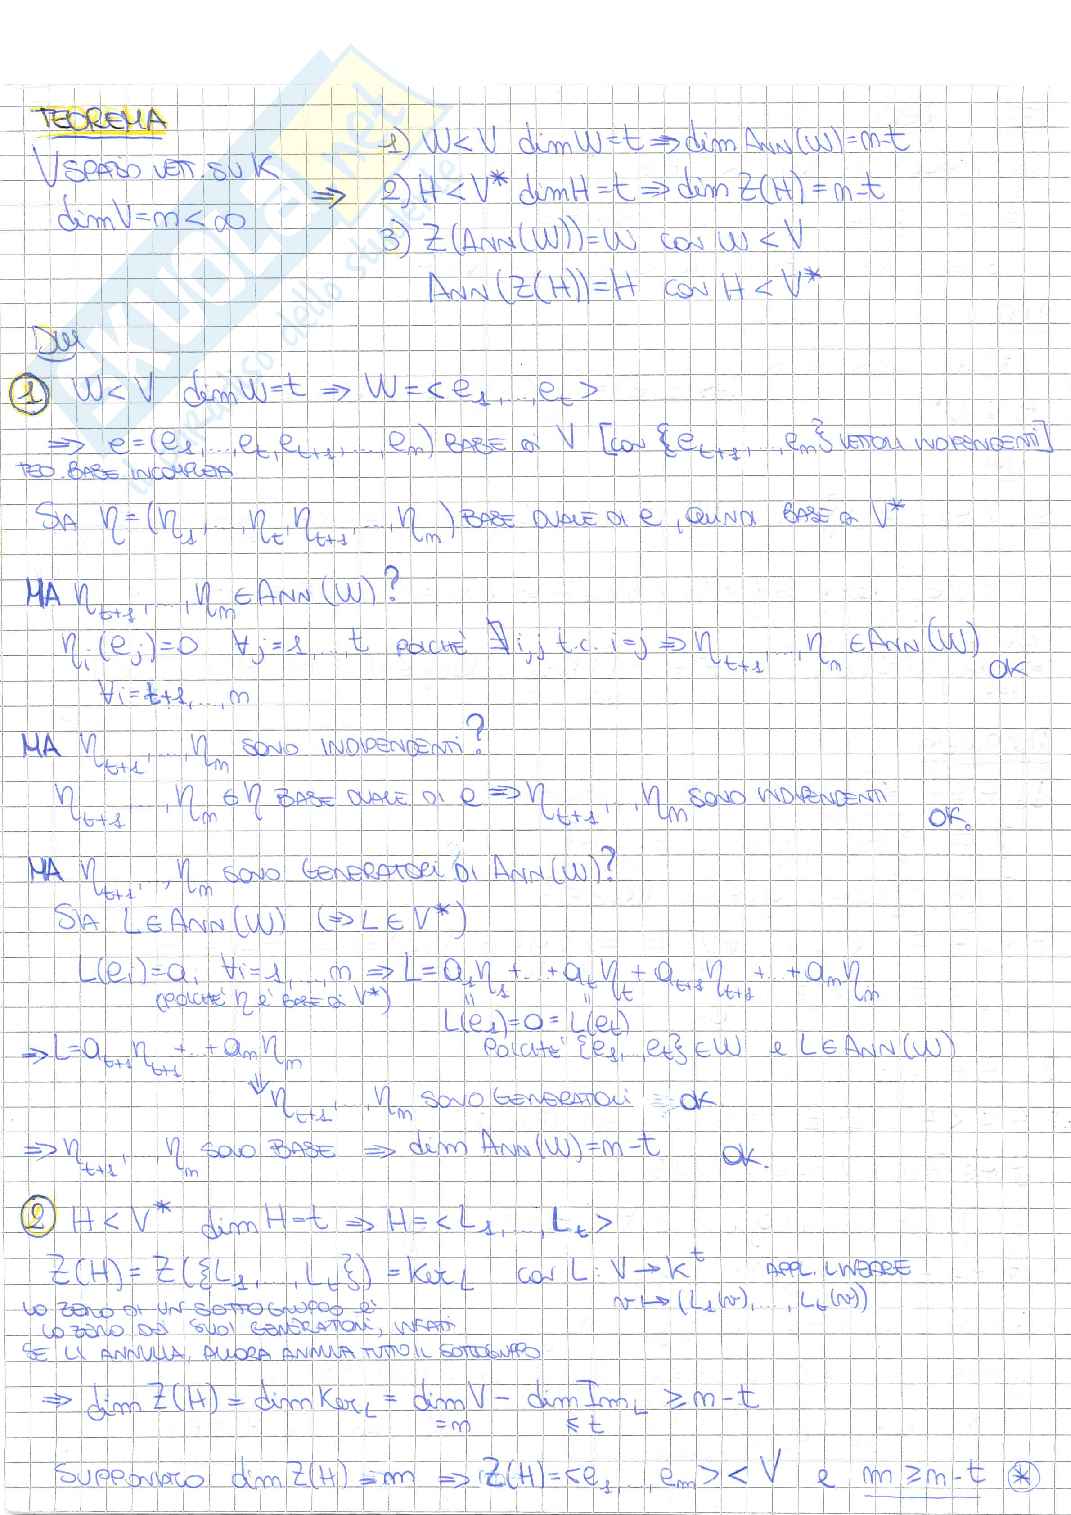 TEOREMA
V SPAZIO VETT. SU K
dim V=n<∞
⇒
1) W<V dim W=t ⇒ dim ANN(W)=n-t
2) H<V* dim H=t ⇒ dim Z(H)=n-t
3) Z(ANN(W))=W CON W<V
ANN(Z(H))=H CON H<V*
DIM
① W<V dim W=t ⇒ W=<e₁,...,e_t>
⇒ e=(e₁,...,e_t,e_{t+1},...,e_n) BASE DI V [CON {e_{t+1},...,e_n} VETTORI INDIPENDENTI]
TEO. BASE INCOMPLETA
SIA η=(η₁,...,η_t,η_{t+1},...,η_n) BASE DUALE DI e, QUINDI BASE DI V*
MA η_{t+1},...,η_n ∈ ANN(W)?
η_i(e_j)=0 ∀j=1,...,t POICHÉ ∄ i,j t.c. i=j ⇒ η_{t+1},...,η_n ∈ ANN(W)
OK
∀i=t+1,...,n
MA η_{t+1},...,η_n SONO INDIPENDENTI?
η_{t+1},...,η_n ∈ η BASE DUALE DI e ⇒ η_{t+1},...,η_n SONO INDIPENDENTI
OK.
MA η_{t+1},...,η_n SONO GENERATORI DI ANN(W)?
SIA L∈ANN(W) (⇒ L∈V*)
L(e_i)=a_i ∀i=1,...,n ⇒ L=a₁η₁+...+a_tη_t+a_{t+1}η_{t+1}+...+a_nη_n
(POICHÉ η È BASE DI V*)
L(e₁)=0=L(e_t)
⇒ L=a_{t+1}η_{t+1}+...+a_nη_n POICHÉ {e₁,...,e_t}∈W e L∈ANN(W)
⇓ η_{t+1},...,η_n SONO GENERATORI OK
⇒ η_{t+1},...,η_n SONO BASE ⇒ dim ANN(W)=n-t OK.
② H<V* dim H=t ⇒ H=<L₁,...,L_t>
Z(H)=Z({L₁,...,L_t})=Ker_L CON L:V→K^t APPL. LINEARE
v↦(L₁(v),...,L_t(v))
LO ZERO DI UN SOTTOGRUPPO È
LO ZERO DEI SUOI GENERATORI, INFATTI
SE LI ANNULLA, ALLORA ANNULLA TUTTO IL SOTTOGRUPPO
⇒ dim Z(H) = dim Ker_L = dim V - dim Im_L ≥ n-t
=n ≤t
SUPPONIAMO dim Z(H)=m ⇒ Z(H)=<e₁,...,e_m> < V e m≥n-t ⊛